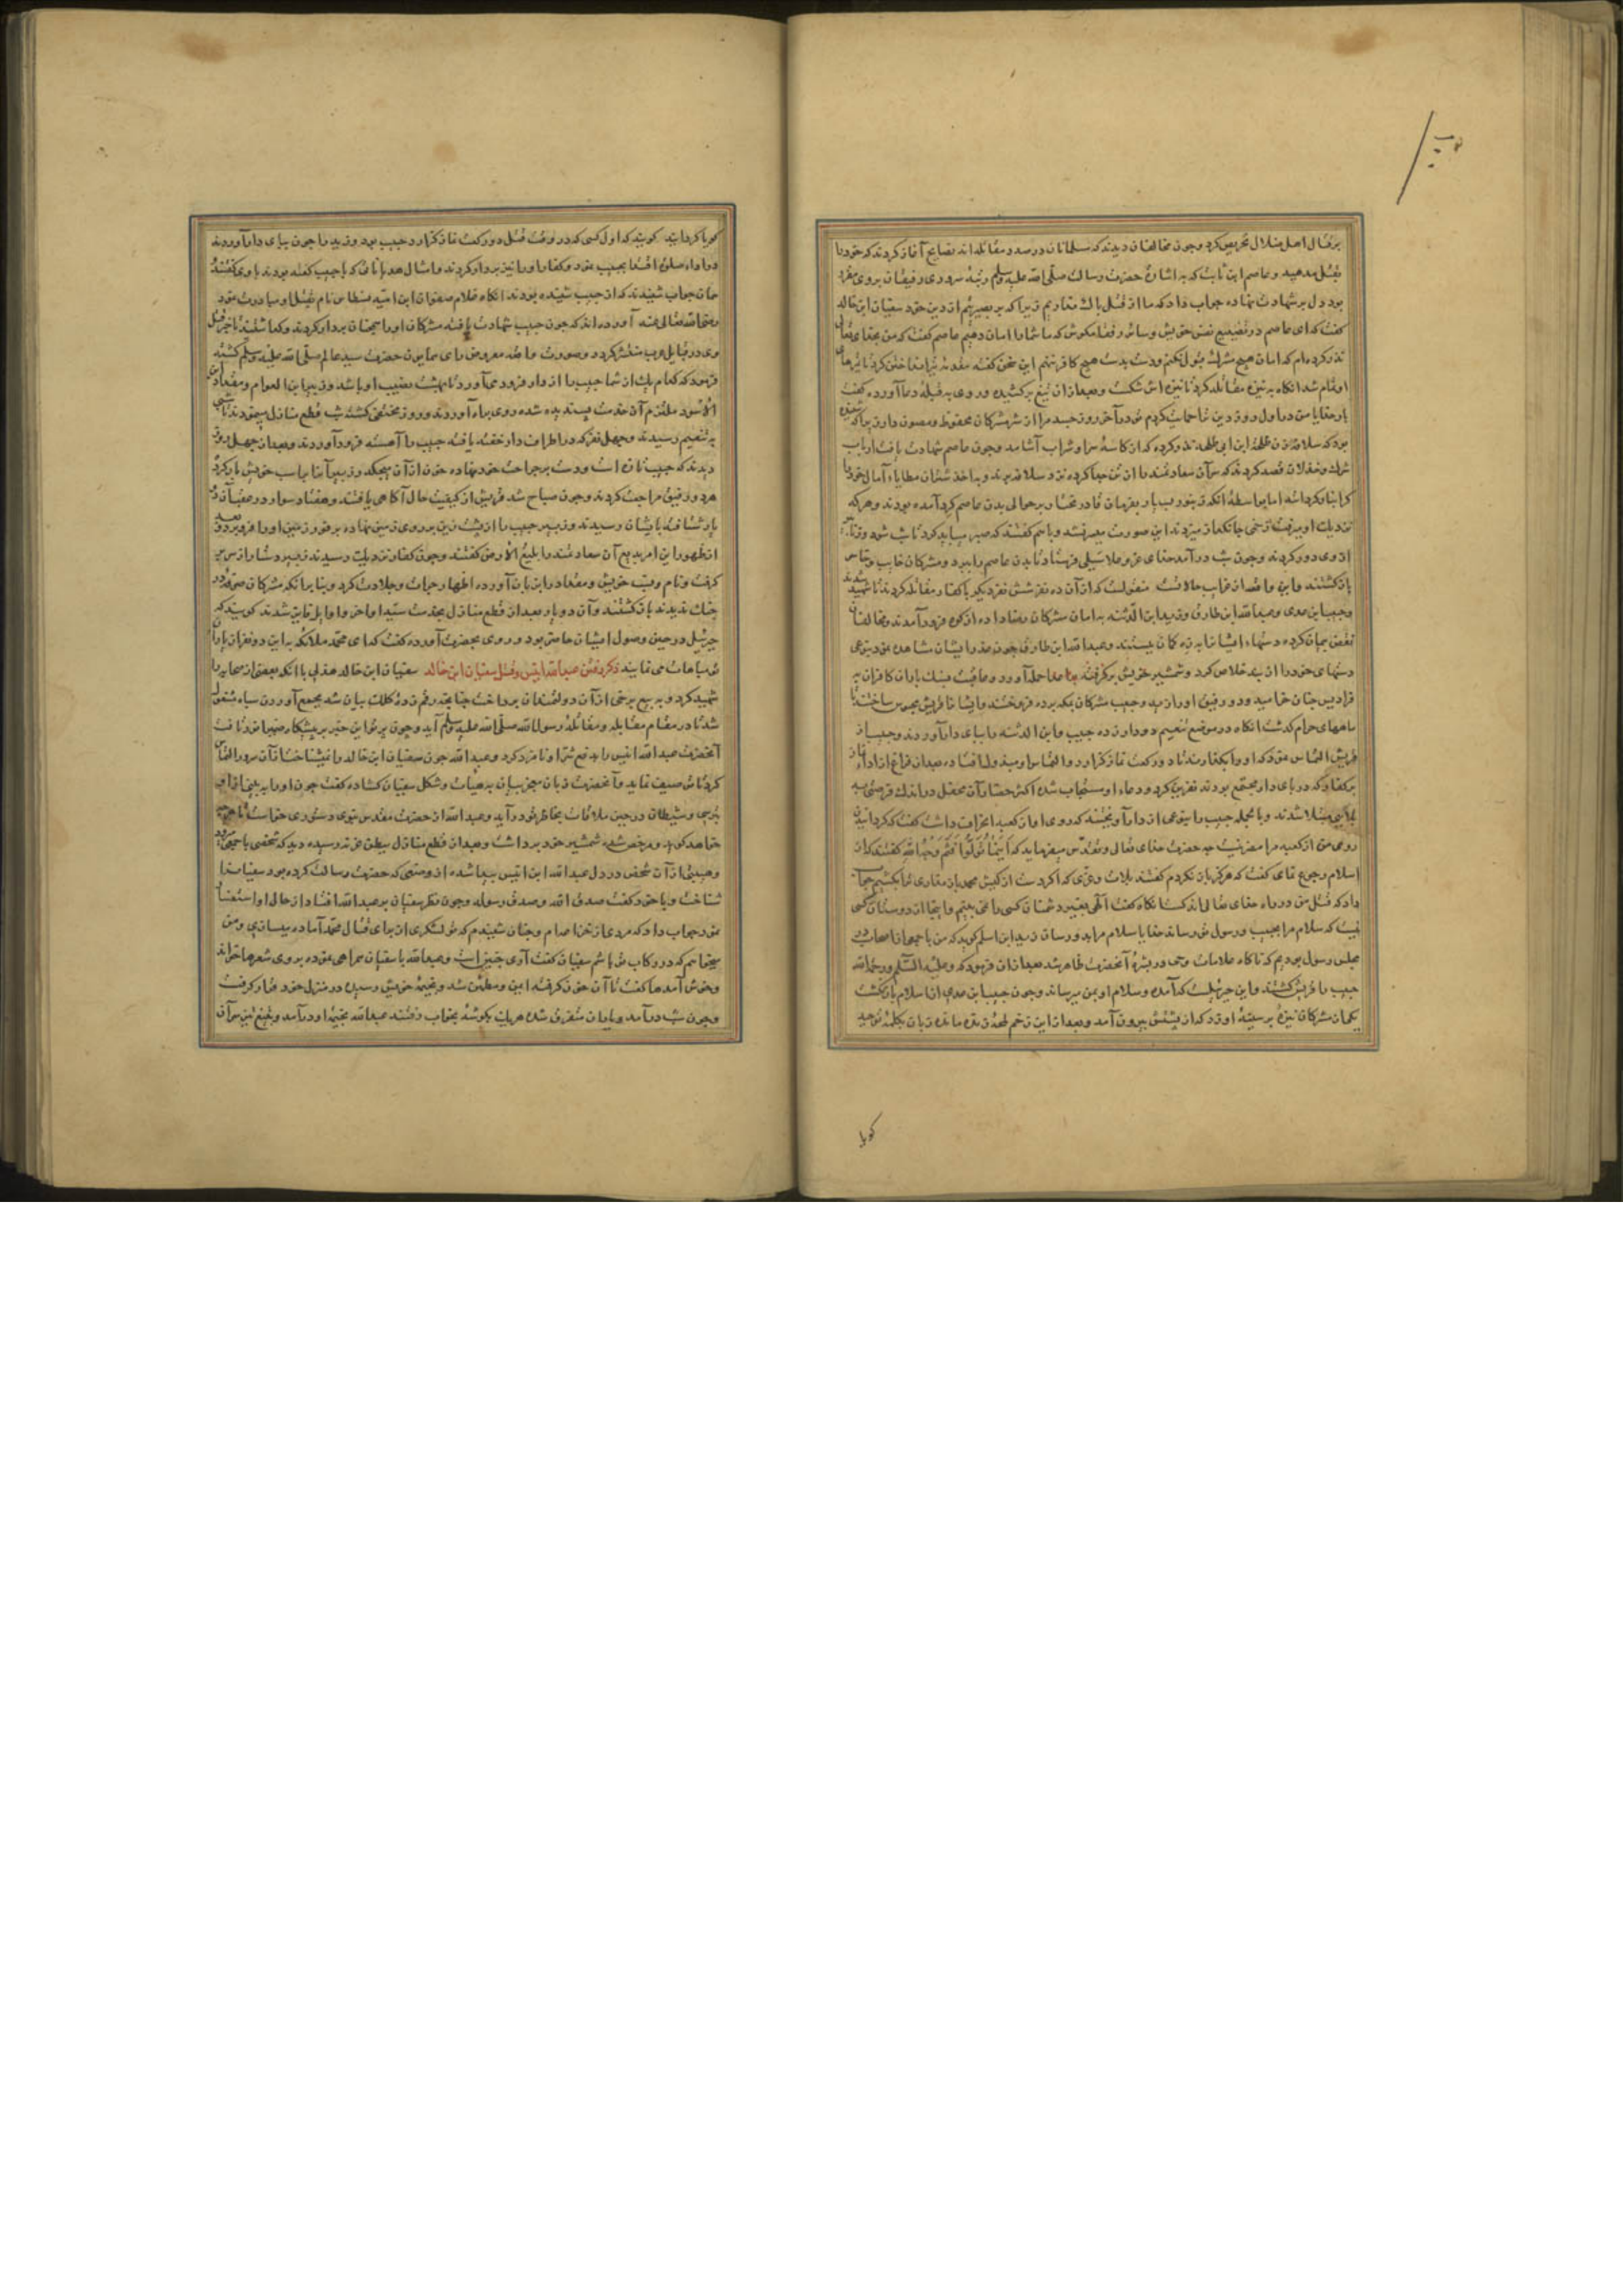 برقتال اهل ضلال تحریص کرد و چون مخالفان دیدند که مسلمانان در صدد مقاتله‌اند نصایح آغاز کردند که خود را
بقتل مدهید و عاصم ابن ثابت که به اشارهٔ حضرت رسالت صلی الله علیه وسلم رتبهٔ سروری رفیقان بروی مقرر
بود دل بر شهادت نهاده جواب داد که ما از قتل باک نداریم زیرا که بر بصیرتیم از دین خود سفیان ابن خالد
کفت که ای عاصم در تضییع نفس خویش و سائر رفقا مکوش که ما شما را امان دهیم عاصم کفت که من بخدای تعالی
نذر کرده‌ام که امان هیچ مشرک قبول نکنم و دست بدست هیچ کافر ننهم این سخن کفته تیر انداختن کرد تا تیرهای
او تمام شد انکاه به نیزه مقاتله کرد تا نیزه‌اش شکست و بعد از آن تیغ برکشیده و روی به قبله دعا آورده کفت
بار خدایا من در اول روز دین ترا حمایت کردم تو در آخر روز جسد مرا از شر مشرکان محفوظ و مصون دار
بود که سلافه زن طلحه ابن ابی طلحه نذر کرده که از کاسهٔ سر او شراب آشامد و چون عاصم شهادت یافت ارباب
شرک و ضلالت قصد کردند که سر آن سعادتمند را از تن جدا کرده نزد سلافه برند و به اخذ شتران مطایاء آمال خود را
کرانبار کردانند اما بواسطهٔ آنکه زنبور بسیار بفرمان قادر مختار بر حوالی بدن عاصم کرد آمده بودند و هر که
نزدیک او میرفت زخمی جانکداز میزدند این صورت میسر نشد و باهم کفتند که صبر میباید کرد تا شب شود و زنابیر
از وی دور کردند و چون شب در آمد خدای عز و علا سیلی فرستاد تا بدن عاصم را ببرد و مشرکان خایب و خاسر
باز کشتند و این واقعه از غرایب حالاتست منقولست که از آن ده نفر شش نفر دیکر با کفار مقاتله کردند تا شهید شدند
و خبیب ابن عدی و عبدالله ابن طارق و زید ابن الدثنه به امان مشرکان رضا داده از کوه فرود آمدند و مخالفان
نقض پیمان کرده دستهاء ایشانرا به زه کمان ببستند و عبدالله ابن طارق چون غدر ایشان مشاهده نمود بنوعی
دستهای خود را از بند خلاص کرد و شمشیر خویش برکرفته بر اعدا حمله آورد و عاقبت بسنک باران کافران به
فرادیس جنان خرامید و دو رفیق او را زید و خبیب مشرکان بمکه برده فروختند و ایشانرا قریش محبوس ساختند تا
ماههای حرام کذشت انکاه در موضع تنعیم دو دار زده خبیب و ابن الدثنه را بپای دار آوردند و خبیب از
قریش التماس نمود که او را بکذارند تا دو رکعت نماز کزارد و التماس او مبذول افتاده بعد از فراغ از اداء نماز
بر کفار که در پای دار مجتمع بودند نفرین کرد و دعاء او مستجاب شده اکثر حضار آن محفل در اندک فرصتی به
بلایی مبتلا شدند و بالجمله خبیب را بنوعی از دار آویختند که روی او از کعبه انحراف داشت کفت که کردانیدن
روی من از کعبه مرا مضر نیست چه حضرت خدای تعالی و تقدس میفرماید که اینما تولوا فثم وجه الله کفتند که از
اسلام رجوع نمای کفت که هرکز باز نکردم کفتند بلات و عزی که اکر دست از کیش محمد باز نداری ترا بکشیم جواب
داد که قتل من در راه خدای تعالی اندکست انکاه کفت الهی بغیر دشمنان کسی را نمی بینم و اینجا از دوستان کسی
نیست که سلام مرا بحبیب و رسول تو رساند خدایا سلام مرا بدو رسان زید ابن اسلم کوید که من با جمعی از اصحاب در
مجلس رسول بودیم که ناکاه علامات وحی در بشرهٔ آنحضرت ظاهر شد بعد از آن فرمود که وعلیه السلام ورحمة الله
خبیب را قریش کشتند و این جبرئیلست که آمده و سلام او بمن میرساند و چون خبیب ابن عدی از اسلام باز نکشت
یکی از مشرکان نیزهٔ بر سینهٔ او زد که از پشتش بیرون آمد و بعد از این زخم لحظهٔ زنده مانده زبان بکلمهٔ توحید
کویا
کویا کردانید کویند که اول کسی که در وقت قتل دو رکعت نماز کزارد خبیب بود و زید را چون بپای دار آوردند
در اداء صلوة اقتدا بخبیب نمود و کفار او را نیز بر دار کردند و امثال هذیانات که با خبیب کفته بودند با وی کفتند
همان جواب شنیدند که از خبیب شنیده بودند انکاه غلام صفوان ابن امیه نسطاس نام بقتل او مبادرت نمود
رضی الله تعالی عنه آورده‌اند که چون خبیب شهادت یافت مشرکان او را همچنان بر دار کردند و کذاشتند تا خبر قتل
وی در قبایل عرب منتشر کردد و صورت واقعه معروض رای همایون حضرت سید عالم صلی الله علیه وسلم کشته
فرمود که کدام یک از شما خبیب را از دار فرود می‌آورد تا بهشت نصیب او باشد و زبیر ابن العوام و مقداد ابن
الاسود ملتزم آن خدمت پسندیده شده روی براه آوردند و روز مختفی کشته شب قطع منازل میمودند تا شبی
به تنعیم رسیدند و چهل نفر که در اطراف دار خفته یافته خبیب را آهسته فرود آوردند و بعد از چهل روز
دیدند که خبیب تازه است و دست بر جراحت خود نهاده خون از آن میچکد و زبیر آنرا بر اسب خویش بار کرد
هر دو رفیق مراجعت کردند و چون صباح شد قریش از کیفیت حال آکاهی یافتند و هفتاد سوار در عقب آن دو
یار شتافته بایشان رسیدند و زبیر خبیب را از پشت زین بر روی زمین نهاده بر فور زمین او را فرو برد و بعد
از ظهور این امر بدیع آن سعادتمند را بلیع الارض کفتند و چون کفار نزدیک رسیدند زبیر دستار از سر بر
کرفت و نام و نسب خویش و مقداد را بر زبان آورده اظهار جرأت و جلادت کرد و بنا بر انکه مشرکان صرفه در
جنک ندیدند باز کشتند و آن دو یار بعد از قطع منازل بخدمت سید اواخر و اوایل فایز شدند کویند که
جبرئیل در حین وصول ایشان حاضر بود و روی بحضرت آورده کفت که ای محمد ملائکه به این دو نفر از یاران
تو مباهات می نمایند ذکر رفتن عبدالله انیس و قتل سفیان ابن خالد سفیان ابن خالد هذلی با انکه بعضی از صحابه را
شهید کرد و به بیع برخی از آن دولتمندان پرداخت چنانچه رقم زدهٔ کلک بیان شد بجمع آوردن سپاه مشغول
شد تا در مقام مقابله و مقاتلهٔ رسول الله صلی الله علیه وسلم آید و چون پرتو این خبر بر پیشکاه ضمیر انور تافت
آنحضرت عبدالله انیس را بدفع شر او نامزد کرد و عبدالله چون سفیان ابن خالد را نمیشناخت از آن سرور التماس
کرد تا توصیف نماید و آنحضرت زبان معجز بیان به هیأت و شکل سفیان کشاده کفت چون او را به بینی از او
بترسی و شیطان در حین ملاقات بخاطر تو در آید و عبدالله از حضرت مقدس نبوی دستوری خواست تا هرچه
خواهد کوید و مرخص شده شمشیر خود برداشت و بعد از قطع منازل ببطن عرنه رسیده دید که شخصی با جمعی میرود
و هیبتی از آن شخص در دل عبدالله ابن انیس پیدا شده از وصفی که حضرت رسالت کرده بود سفیانرا
شناخت و با خود کفت صدق الله وصدق رسوله و چون نظر سفیان بر عبدالله افتاد از حال او استفسار
نمود جواب داد که مردی از خزاعه‌ام و چنان شنیدم که تو لشکری از برای قتال محمد آماده میسازی و من
میخواهم که در رکاب تو باشم سفیان کفت آری چنین است و عبدالله با سفیان همراهی نموده بر وی شعرها خواند
و خوش آمدها کفت تا آن خون کرفته ایمن و مطمئن شد و بخیمهٔ خویش رسیده در منزل خود قرار کرفت
و چون شب در آمد و یاران متفرق شده هر یک بکوشهٔ بخواب رفتند عبدالله بخیمهٔ او در آمد و بتیغ تیز سر آن